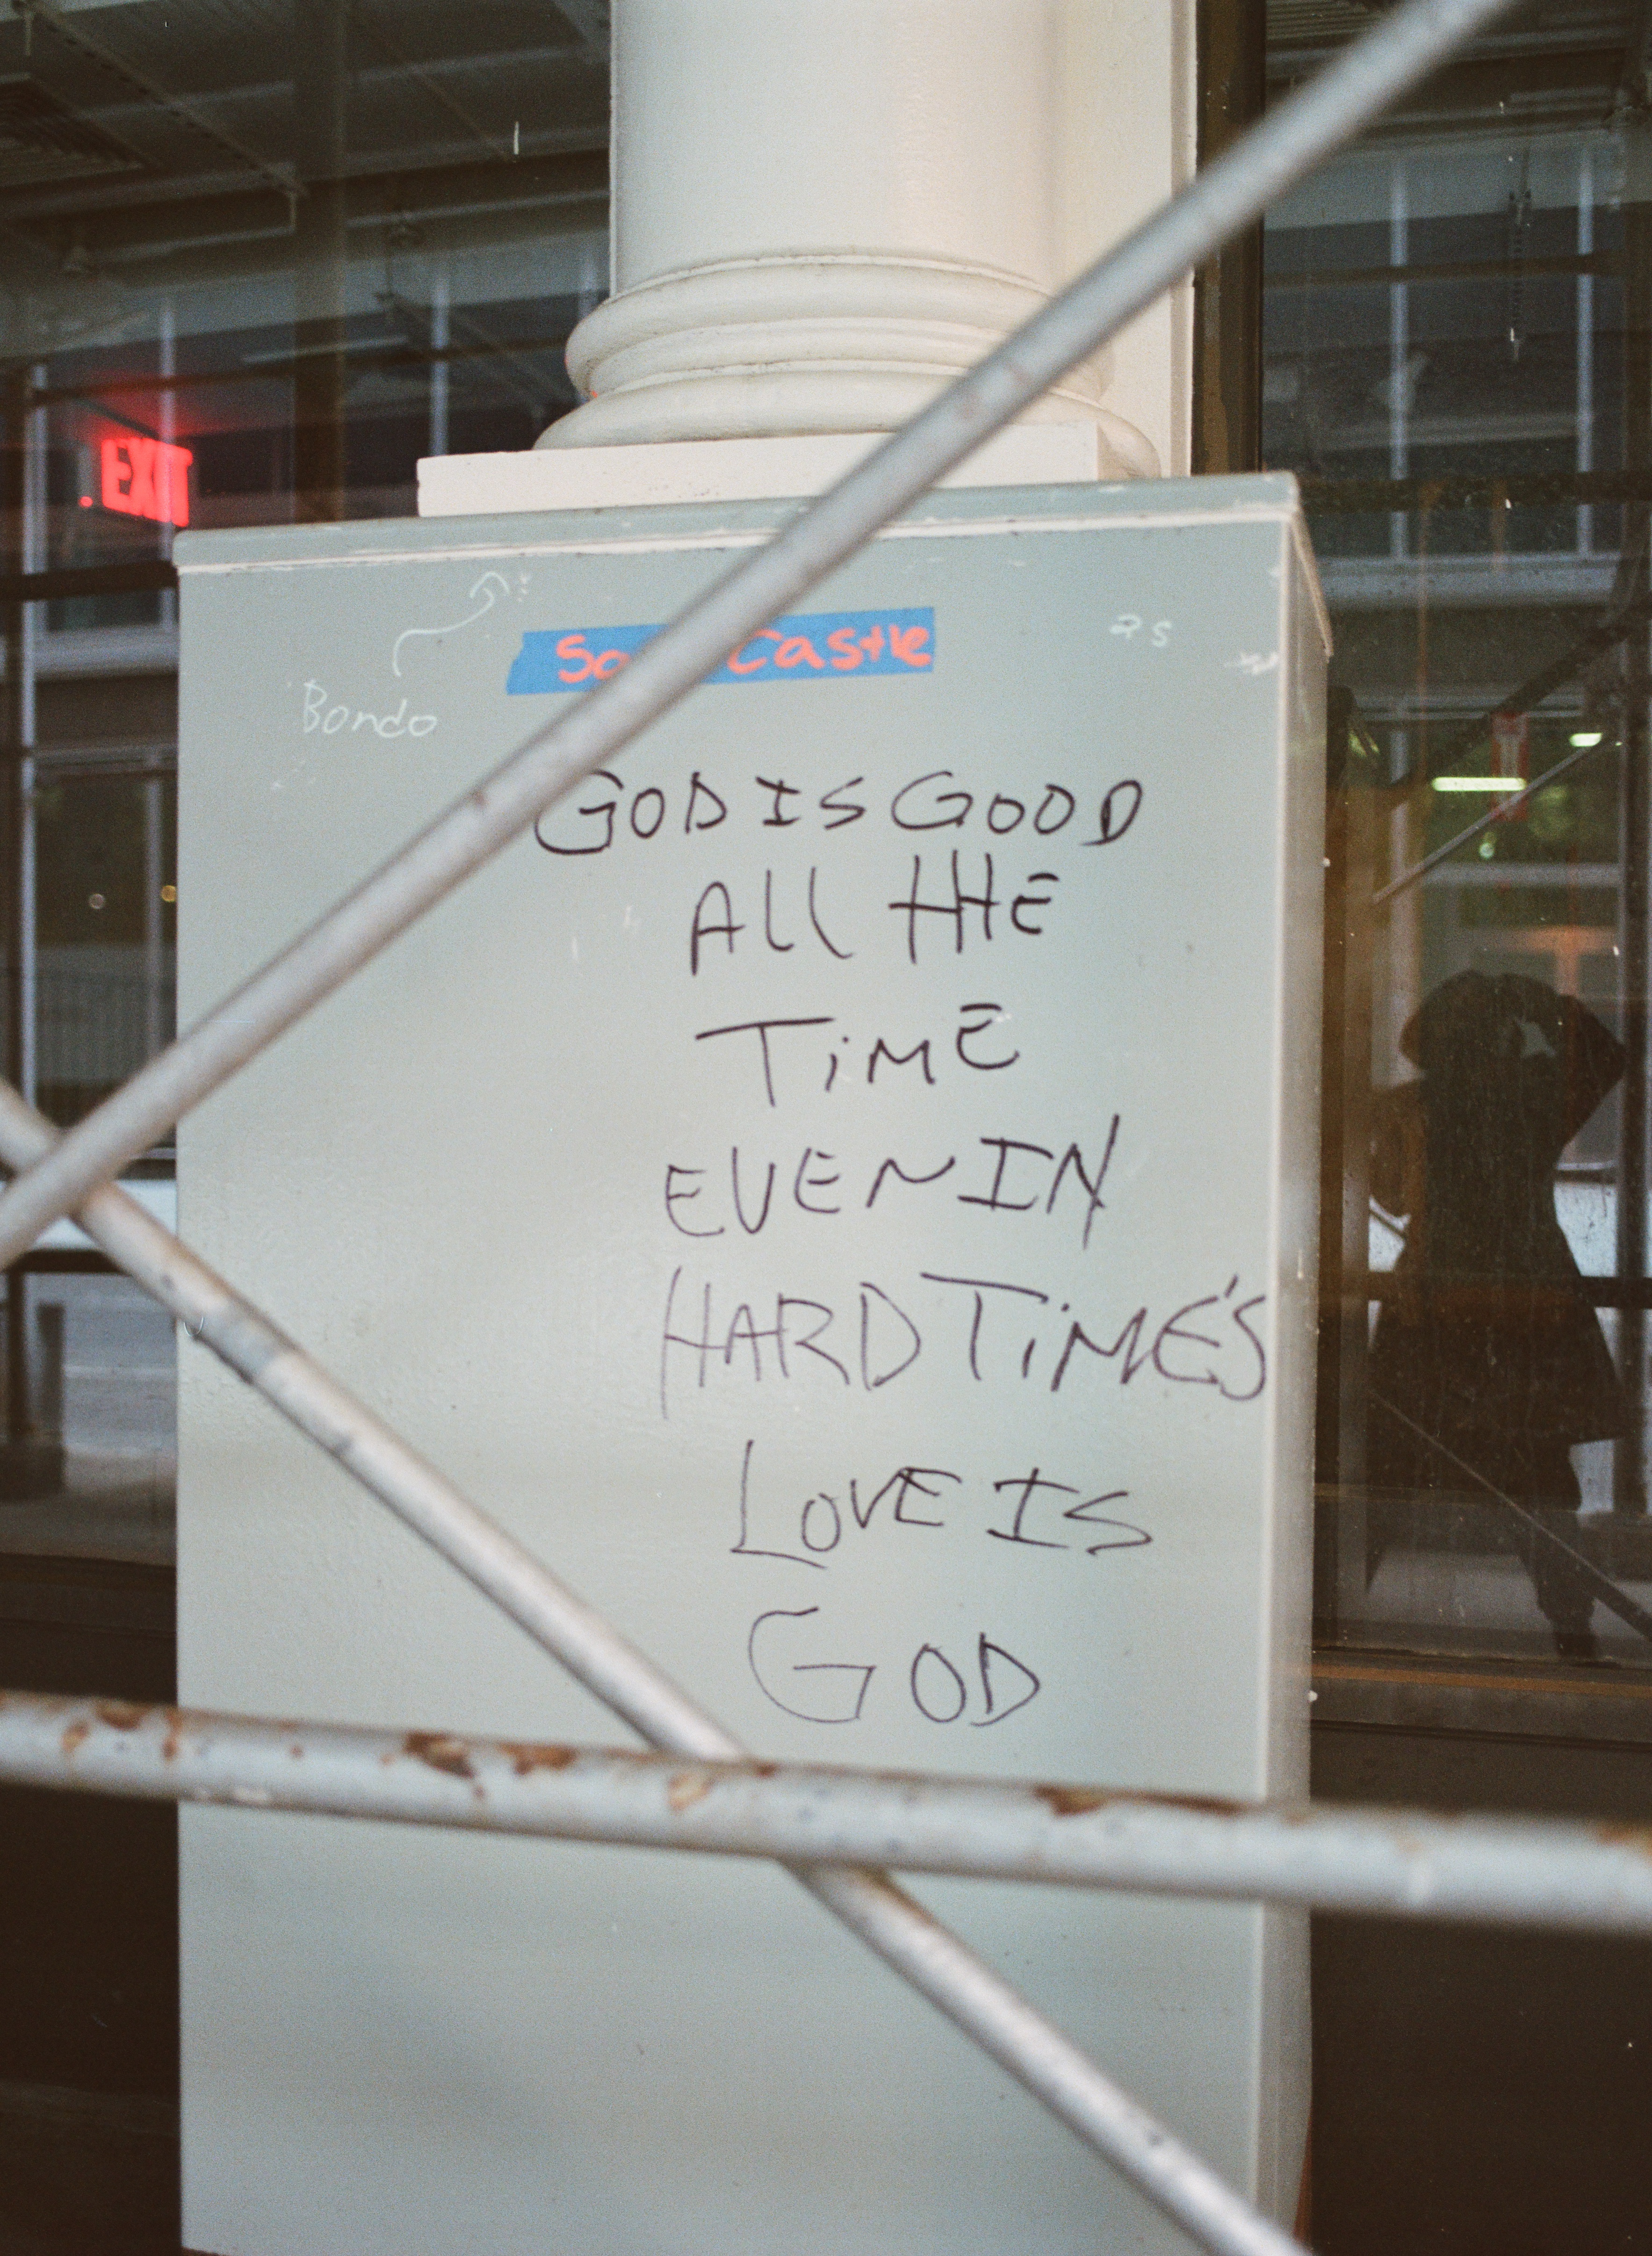 EXIT
Castle
Bondo
GOD IS GOOD
All THE
TiME
EVEN IN
HARD TiME'S
LOVE IS
GOD